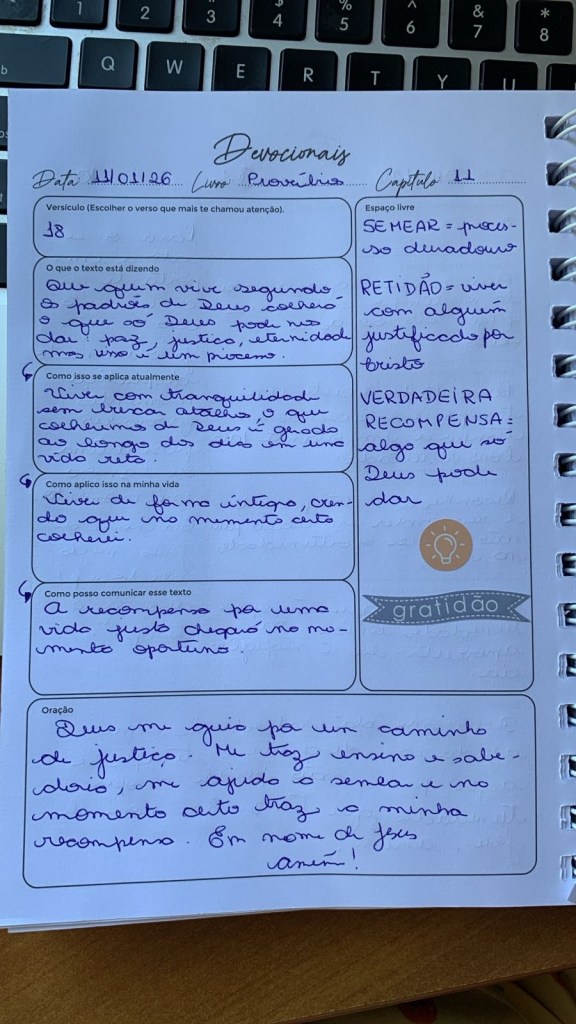 1
2
3
4
%
5
^
6
&
7
*
8
Q
W
E
R
T
Y
U
Devocionais
Data 11/01/26 Livro Provérbios Capítulo 11
Versículo (Escolher o verso que mais te chamou atenção).
18
O que o texto está dizendo
Que quem vive segundo
os padrões de Deus colherá
o que só Deus pode nos
dar: paz, justiça, eternidade
mas isso é um processo.
Como isso se aplica atualmente
Viver com tranquilidade
sem buscar atalho, o que
colheremos de Deus é gerado
ao longo dos dias em uma
vida reta.
Como aplico isso na minha vida
Viver de forma íntegra, cren-
do que no momento certo
colherei.
Como posso comunicar esse texto
A recompensa por uma
vida justa chegará no mo-
mento oportuno.
Espaço livre
SEMEAR = proces-
so duradouro
RETIDÃO = viver
com alguém
justificado por
Cristo
VERDADEIRA
RECOMPENSA =
algo que só
Deus pode
dar
gratidão
Oração
Deus me guia por um caminho
de justiça. Me traz ensino e sabe-
doria, me ajuda a semear e no
momento certo traz a minha
recompensa. Em nome de Jesus
amém!